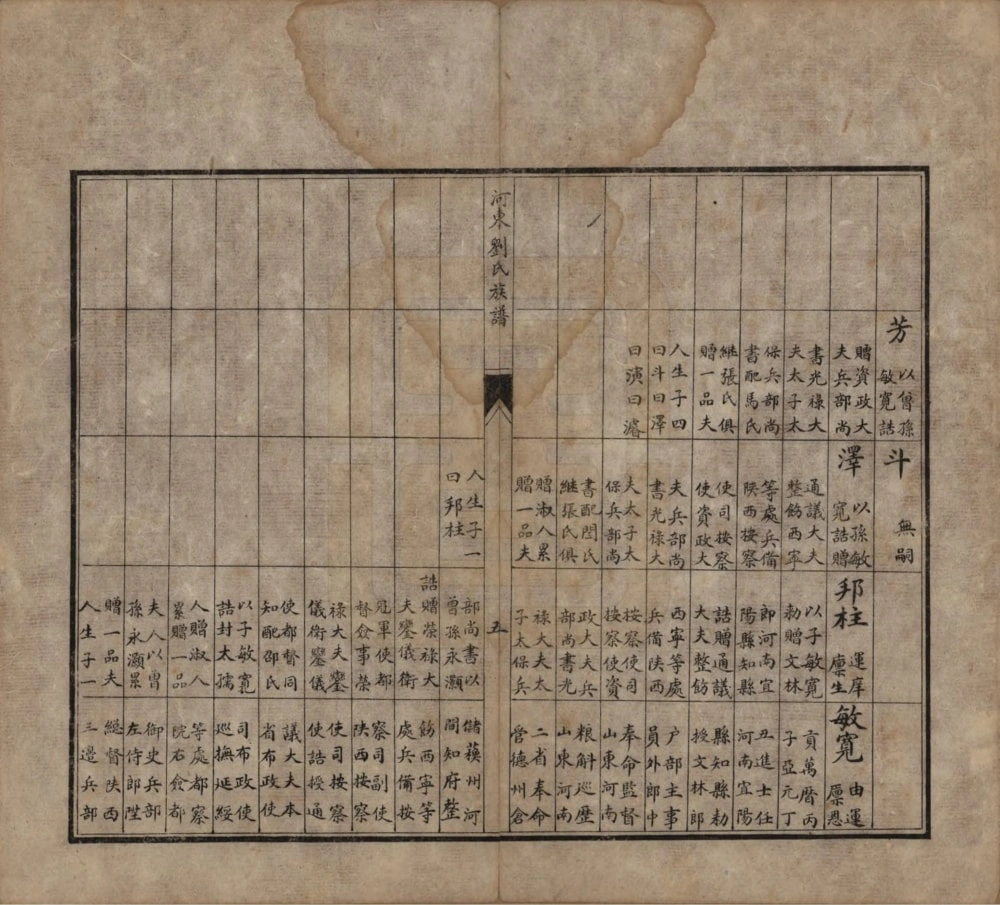 河東劉氏族譜
五
芳
以曾孫
敏寬誥
贈資政大
夫兵部尚
書光祿大
夫太子太
保兵部尚
書配馬氏
繼張氏俱
贈一品夫
人生子四
曰斗曰澤
曰演曰濬
斗 無嗣
澤
以孫敏
寬誥贈
通議大夫
整飭西寧
等處兵備
陝西按察
使司按察
使資政大
夫兵部尚
書光祿大
夫太子太
保兵部尚
書配閻氏
繼張氏俱
贈淑人累
贈一品夫
人生子一
曰邦柱
邦柱
運庠
廩生
以子敏寬
勅贈文林
郎河南宜
陽縣知縣
誥贈通議
大夫整飭
西寧等處
兵備陝西
按察使司
按察使資
政大夫兵
部尚書光
祿大夫太
子太保兵
部尚書以
曾孫永灝
誥贈榮祿大
夫鑾儀衛
冠軍使都
督僉事榮
祿大夫鑾
儀衛鑾儀
使都督同
知配邵氏
以子敏寬
誥封太孺
人贈淑人
累贈一品
夫人以曾
孫永灝累
贈一品夫
人生子一
敏寬
由運
廩恩
貢萬曆丙
子亞元丁
丑進士任
河南宜陽
縣知縣勅
授文林郎
户部主事
員外郎中
奉命監督
山東河南
粮斛巡歷
山東河南
二省奉命
管德州倉
儲䕫州河
間知府整
飭西寧等
處兵備按
察司副使
陝西按察
使司按察
使誥授通
議大夫本
省布政使
司布政使
巡撫延綏
等處都察
院右僉都
御史兵部
左侍郎陞
總督陝西
三邊兵部